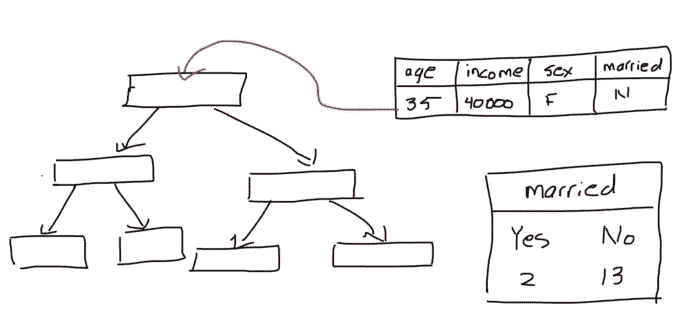 age income sex married
35 40000 F N
married
Yes No
2 13